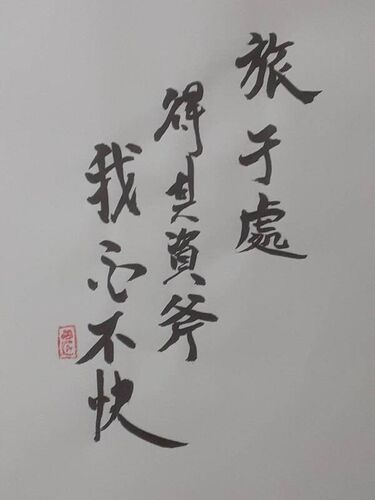 旅于處
得其資斧
我心不快